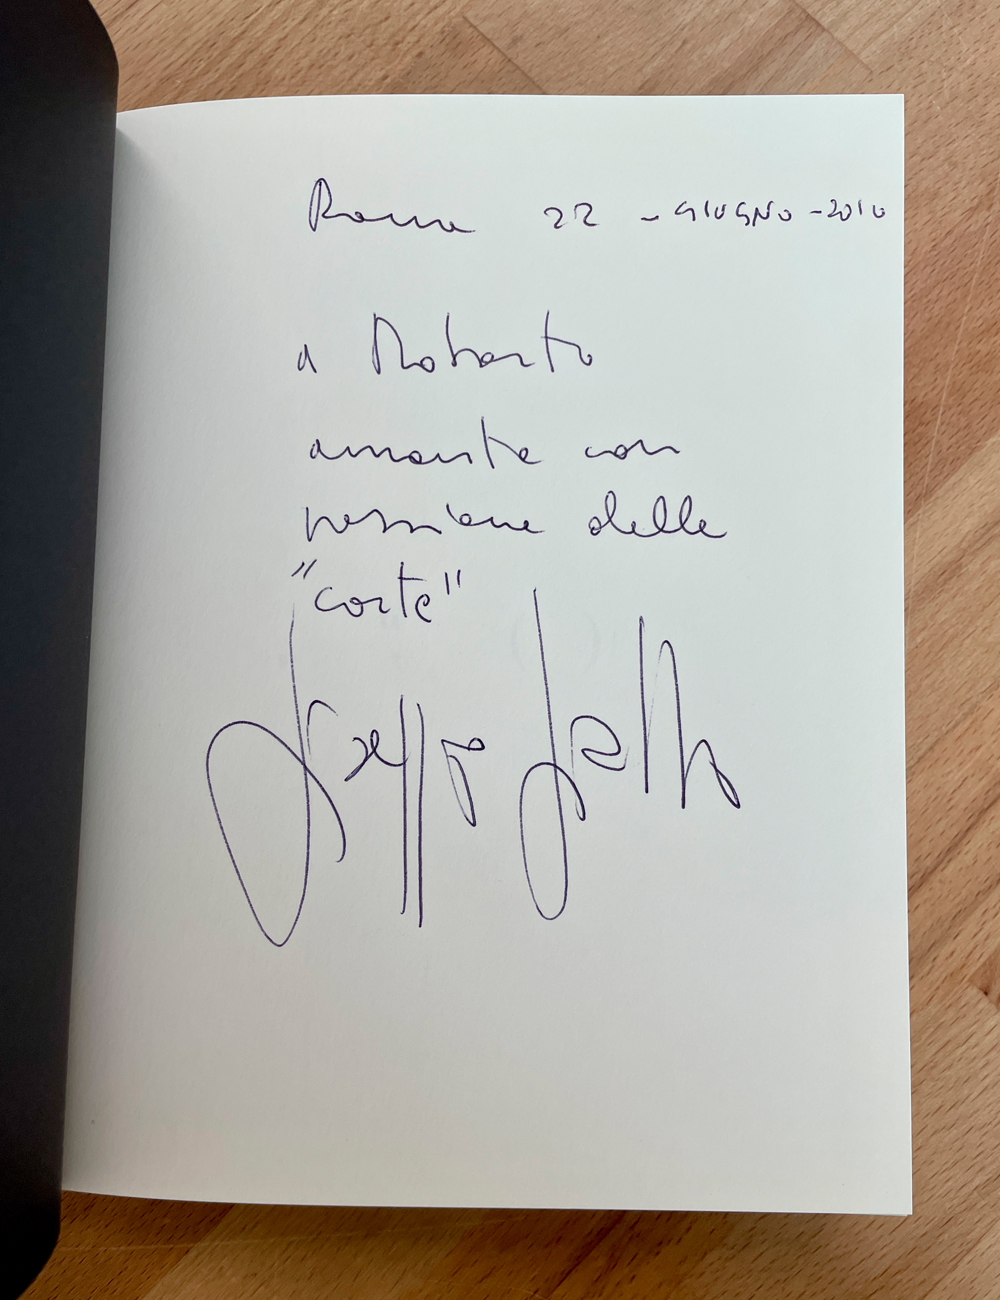 Roma 22 - GIUGNO - 2010
a Roberto
amante con
passione delle
"carte"
Giuseppe Gallo